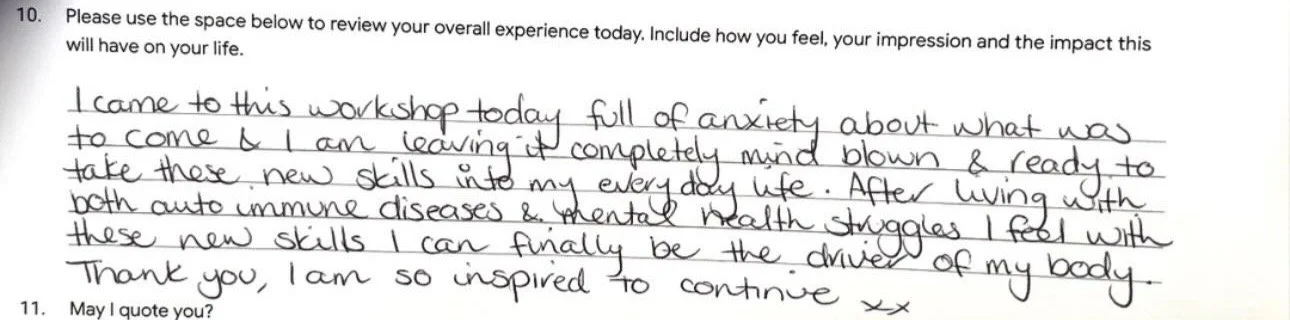 10. Please use the space below to review your overall experience today. Include how you feel, your impression and the impact this
will have on your life.
I came to this workshop today full of anxiety about what was
to come & I am leaving it completely mind blown & ready to
take these new skills into my every day life. After living with
both auto immune diseases & mental health struggles I feel with
these new skills I can finally be the driver of my body.
Thank you, I am so inspired to continue xx
11. May I quote you?